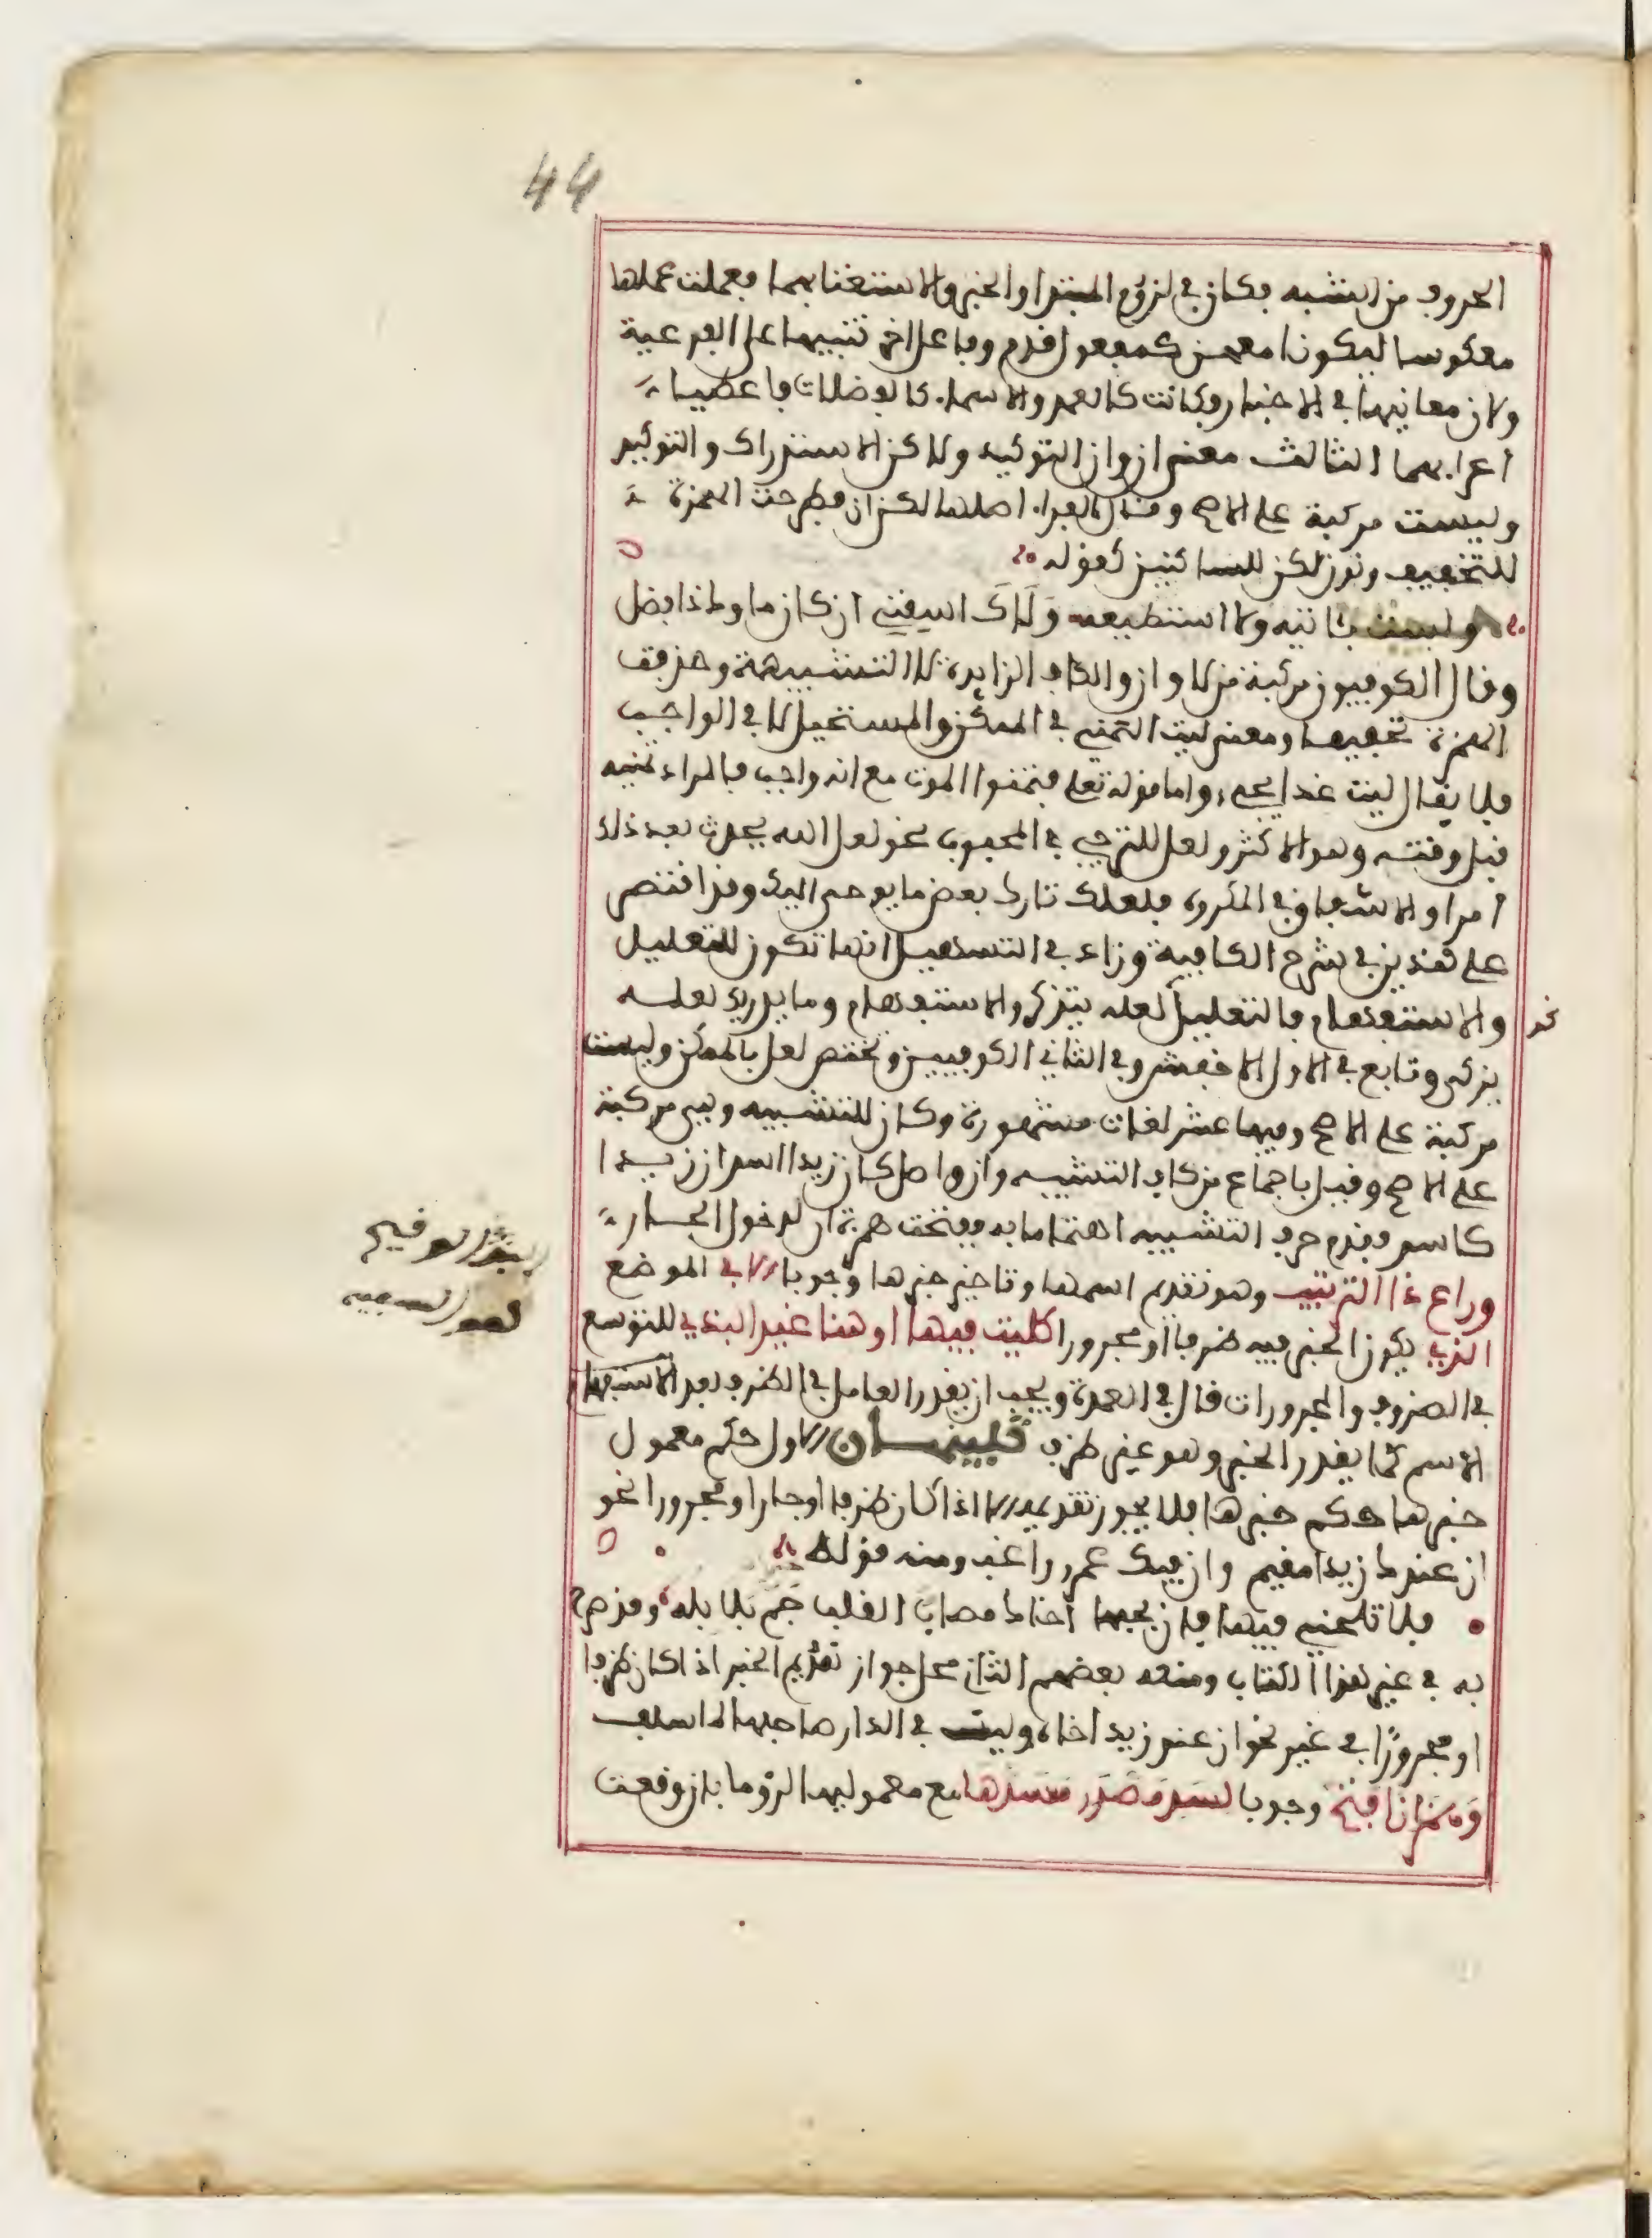 44
الحروف من الشبه بكان في لزوم المبتدا والخبر والاستغنا بهما فعملت عملها
معكوسا ليكونا معهن كمفعول قدم وفاعل اخر تنبيها على الفرعية
ولان معانيها في الاخبار وكانت كالعمد والاسماء كالفضلات فاعطيا
اعرابهما الثالث معنى ان وان التوكيد ولاكن الاستدراك والتوكيد
وليست مركبة على الاصح وقال الفراء اصلها لكن ان فطرحت الهمزة
للتخفيف ونون لكن للساكنين كقوله
ولست باتيه ولا استطيعه ولاك اسقني ان كان ماوك ذا فضل
وقال الكوفيون مركبة من لا وان والكاف الزايدة لا التشبيهة وحذفت
الهمزة تخفيفا ومعنى ليت التمني في الممكن والمستحيل لا في الواجب
فلا يقال ليت غدا يجيء واما قوله تعلى فتمنوا الموت مع انه واجب فالمراد تمنيه
قبل وقته وهو الاكثر ولعل للترجي في المحبوب نحو لعل الله يحدث بعد ذلك
امرا والاشفاق في المكروه فلعلك تارك بعض ما يوحى اليك وقد اقتصر
على هذين في شرح الكافية وزاد في التسهيل انها تكون للتعليل
والاستفهام فالتعليل لعله يتذكر والاستفهام وما يدريك لعله
نحو
يزكى وتابع في الاول الاخفش وفي الثاني الكوفيين وتختص لعل بالممكن وليست
مركبة على الاصح وفيها عشر لغات مشهورة وكان للتشبيه وهي مركبة
على الاصح وقيل باجماع من كاف التشبيه وان واصل كان زيدا اسد ان زيدا
كاسد فقدم حرف التشبيه اهتماما به ففتحت همزة ان لدخول الجار
وراع ذا الترتيب وهو تقديم اسمها وتاخير خبرها وجوبا الا في الموضع
الذي يكون الخبر فيه ظرفا او مجرورا كليت فيها او هنا غير البذي للتوسع
في الظروف والمجرورات قال في العمدة ويجب ان يقدر العامل في الظرف بعد الاسم
الاسم كما يقدر الخبر وهو غير ظرف تنبيهان الاول حكم معمول
خبرها حكم خبرها فلا يجوز تقديمه الا اذا كان ظرفا او جارا ومجرورا نحو
ان عندك زيدا مقيم وان فيك عمرا راغب ومنه قوله
فلا تلحني فيها فان بحبها اخاك مصاب القلب جم بلابله وقد صرح
به في غير هذا الكتاب ومنعه بعضهم الثاني محل جواز تقديم الخبر اذا كان ظرفا
او مجرورا في غير نحو ان عند زيد اخاه وليت في الدار صاحبها لما سلف
وهمز ان افتح وجوبا لسد مصدر مسدها مع معموليها لزوما بان وقعت